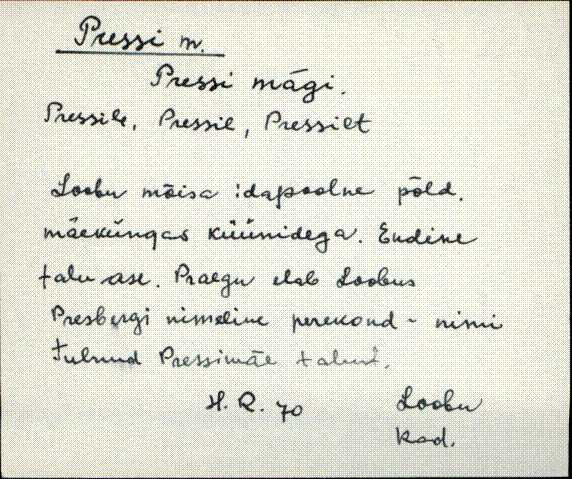 Pressi m.
Pressi mägi.
Pressile, Pressil, Pressilt
Loobu mõisa idapoolne põld.
mäeküngas küünidega. Endine
talu ase. Praegu elab Loobus
Presbergi nimeline perekond - nimi
tulnud Pressimäe talust.
H. R. 70
Loobu
Kad.